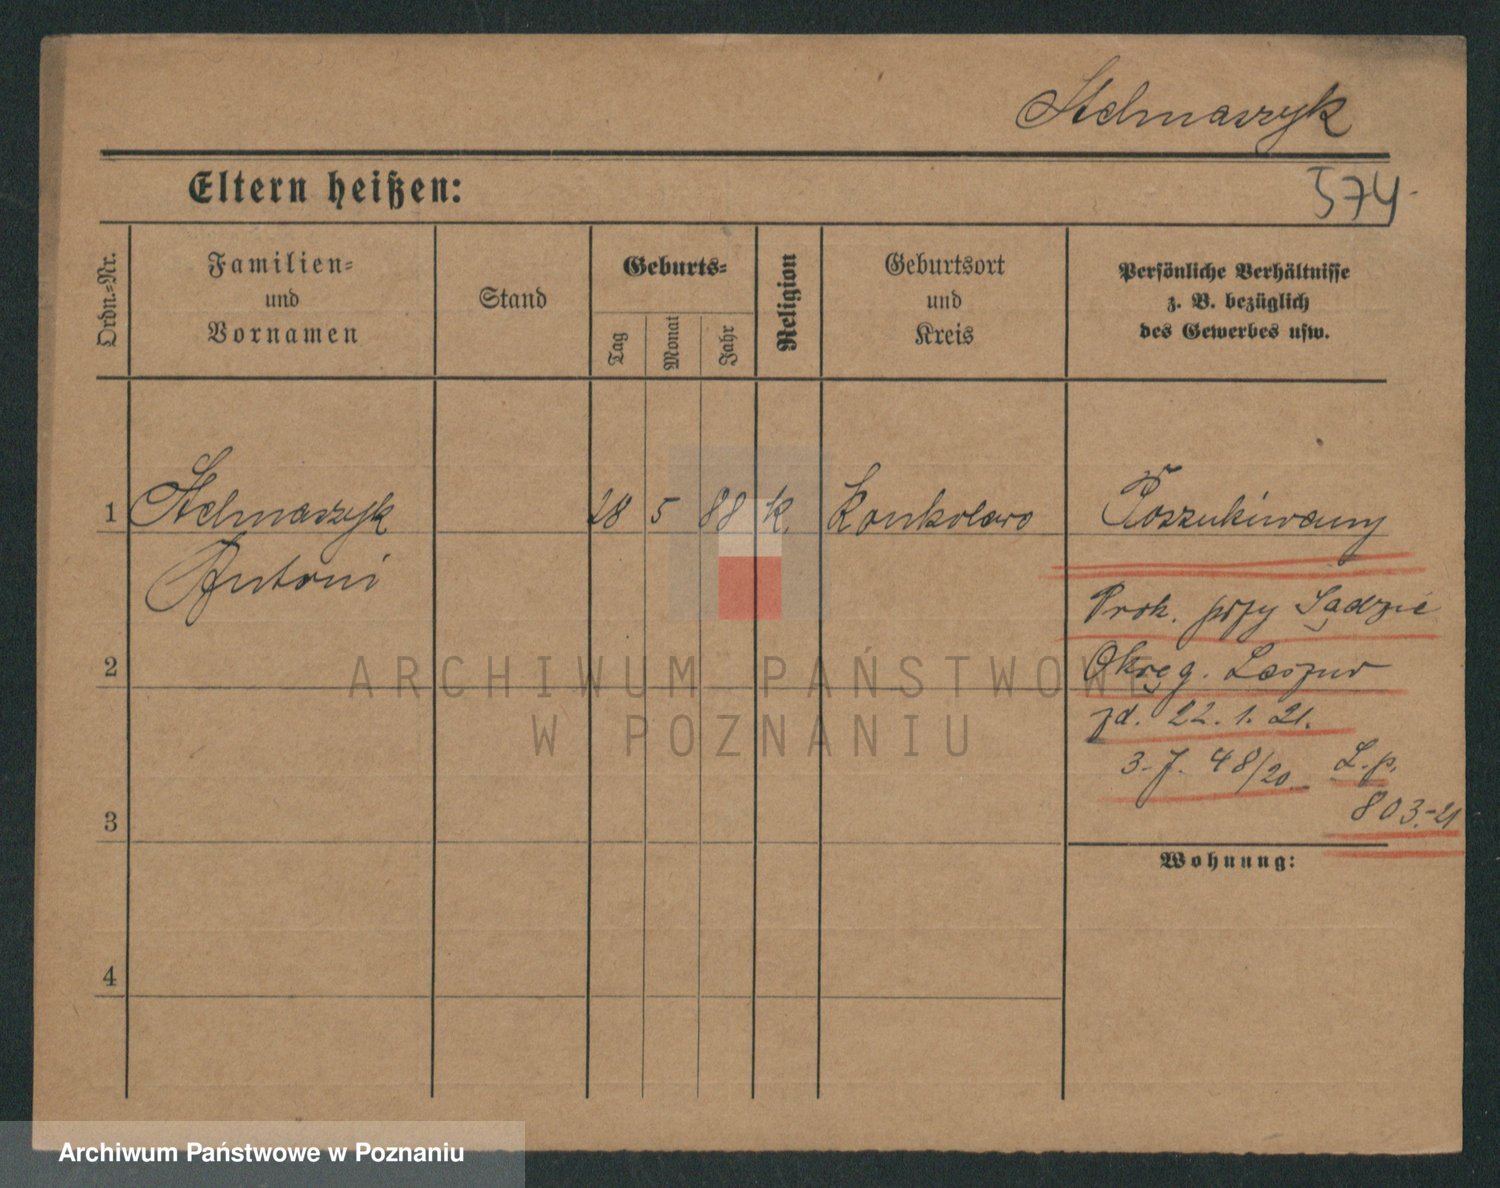 Stelmaszyk
Eltern heißen:
574
Ordn.-Nr.
Familien-
und
Vornamen
Stand
Geburts-
Tag
Monat
Jahr
Religion
Geburtsort
und
Kreis
Persönliche Verhältnisse
z. B. bezüglich
des Gewerbes usw.
1 Stelmaszyk 28 5 88 k. Konkolewo Poszukiwany
Antoni
Prok. przy Sądzie
2 Okręg.
zd. 22. 1. 21.
3. J. 48/20 L. p.
3 803.-21
Wohnung:
4
ARCHIWUM PAŃSTWOWE
W POZNANIU
Archiwum Państwowe w Poznaniu